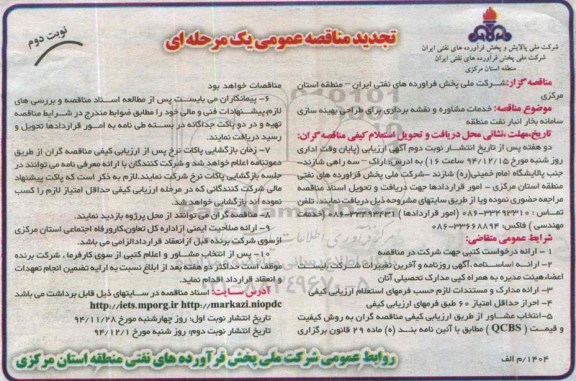 تجدید مناقصه عمومی یک مرحله ای
نوبت دوم
شرکت ملی پالایش و پخش فرآورده های نفتی ایران
شرکت ملی پخش فرآورده های نفتی ایران
منطقه استان مرکزی
مناقصه گزار: شرکت ملی پخش فرآورده های نفتی ایران - منطقه استان
مرکزی
موضوع مناقصه: خدمات مشاوره و نقشه برداری برای طراحی بهینه سازی
سامانه بخار انبار نفت منطقه
تاریخ، مهلت، نشانی محل دریافت و تحویل استعلام کیفی مناقصه گران:
دو هفته پس از تاریخ انتشار نوبت دوم آگهی ارزیابی (پایان وقت اداری
روز شنبه مورخ ۹۴/۱۲/۱۵ ساعت ۱۶) به آدرس: اراک - سه راهی شازند-
جنب پالایشگاه امام خمینی(ره) شازند - شرکت ملی پخش فرآورده های نفتی
منطقه استان مرکزی - امور قراردادها جهت دریافت و تحویل اسناد مناقصه
مراجعه حضوری نموده ویا از طریق سایتهای مشروحه ذیل دریافت نمایند. تلفن
تماس: ۳۳۴۹۲۳۱۰-۰۸۶ (امور قراردادها) ۰۸۶- (خدمات
مهندسی) فاکس: ۳۳۶۶۸۸۹۴-۰۸۶
شرایط عمومی متقاضی:
۱- ارائه درخواست کتبی جهت شرکت در مناقصه
۲- ارائه اساسنامه، آگهی روزنامه و آخرین تغییرات شرکت، لیست
اعضاءهیئت مدیره به همراه کپی مدارک تحصیلی آنان
۳- ارائه مدارک و مستندات لازم حسب فرمهای استعلام ارزیابی کیفی
۴- احراز حداقل امتیاز ۶۰ طبق فرمهای ارزیابی کیفی
۵- انتخاب مشاور از طریق ارزیابی کیفی مناقصه گران به روش کیفیت
و قیمت (QCBS) مطابق با آئین نامه بند (ه) ماده ۲۹ قانون برگزاری
مناقصات خواهد بود
۶- پیمانکاران می بایست پس از مطالعه اسناد مناقصه و بررسی های
لازم پیشنهادات فنی و مالی خود را مطابق ضوابط مندرج در شرایط مناقصه
تهیه و در دو پاکت جداگانه در بسته طی نامه به امور قراردادها تحویل و
رسید دریافت نمایند.
۷- زمان بازگشایی پاکات نرخ پس از ارزیابی کیفی مناقصه گران از طریق
دعوتنامه اعلام خواهد شد و شرکت کنندگان با ارائه معرفی نامه می توانند در
جلسه بازگشایی پاکات نرخ شرکت نمایند. لازم به ذکر است که پاکت پیشنهاد
مالی شرکت کنندگانی که در مرحله ارزیابی کیفی حداقل امتیاز لازم را کسب
نموده اند بازگشایی خواهد شد.
۸- مناقصه گران می توانند از محل پروژه بازدید نمایند.
۹- ارائه صلاحیت ایمنی ازاداره کل تعاون، کارورفاه اجتماعی استان مرکزی
ازسوی شرکت برنده قبل ازانعقاد قراردادالزامی می باشد.
۱۰- پس از انتخاب مشاور و اعلام کتبی از سوی کارفرما، شرکت برنده
موظف است حداکثر دو هفته بعد از ابلاغ نسبت به ارایه تضمین انجام تعهدات
و انعقاد قرارداد اقدام نماید.
آدرس سایت: اسناد مناقصه در سایتهای ذیل قابل برداشت می باشد
http://iets.mporg.ir http://markazi.niopdc
تاریخ انتشار نوبت اول: روز چهارشنبه مورخ ۹۴/۱۱/۲۸
تاریخ انتشار نوبت دوم: روز شنبه مورخ ۹۴/۱۲/۱
۱۴۰۴/م الف
روابط عمومی شرکت ملی پخش فرآورده های نفتی منطقه استان مرکزی